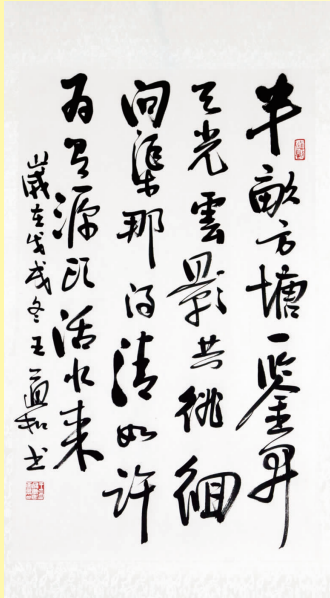 半畝方塘一鑒開
天光雲影共徘徊
问渠那得清如許
为有源頭活水来
歲在戊戌冬王和书